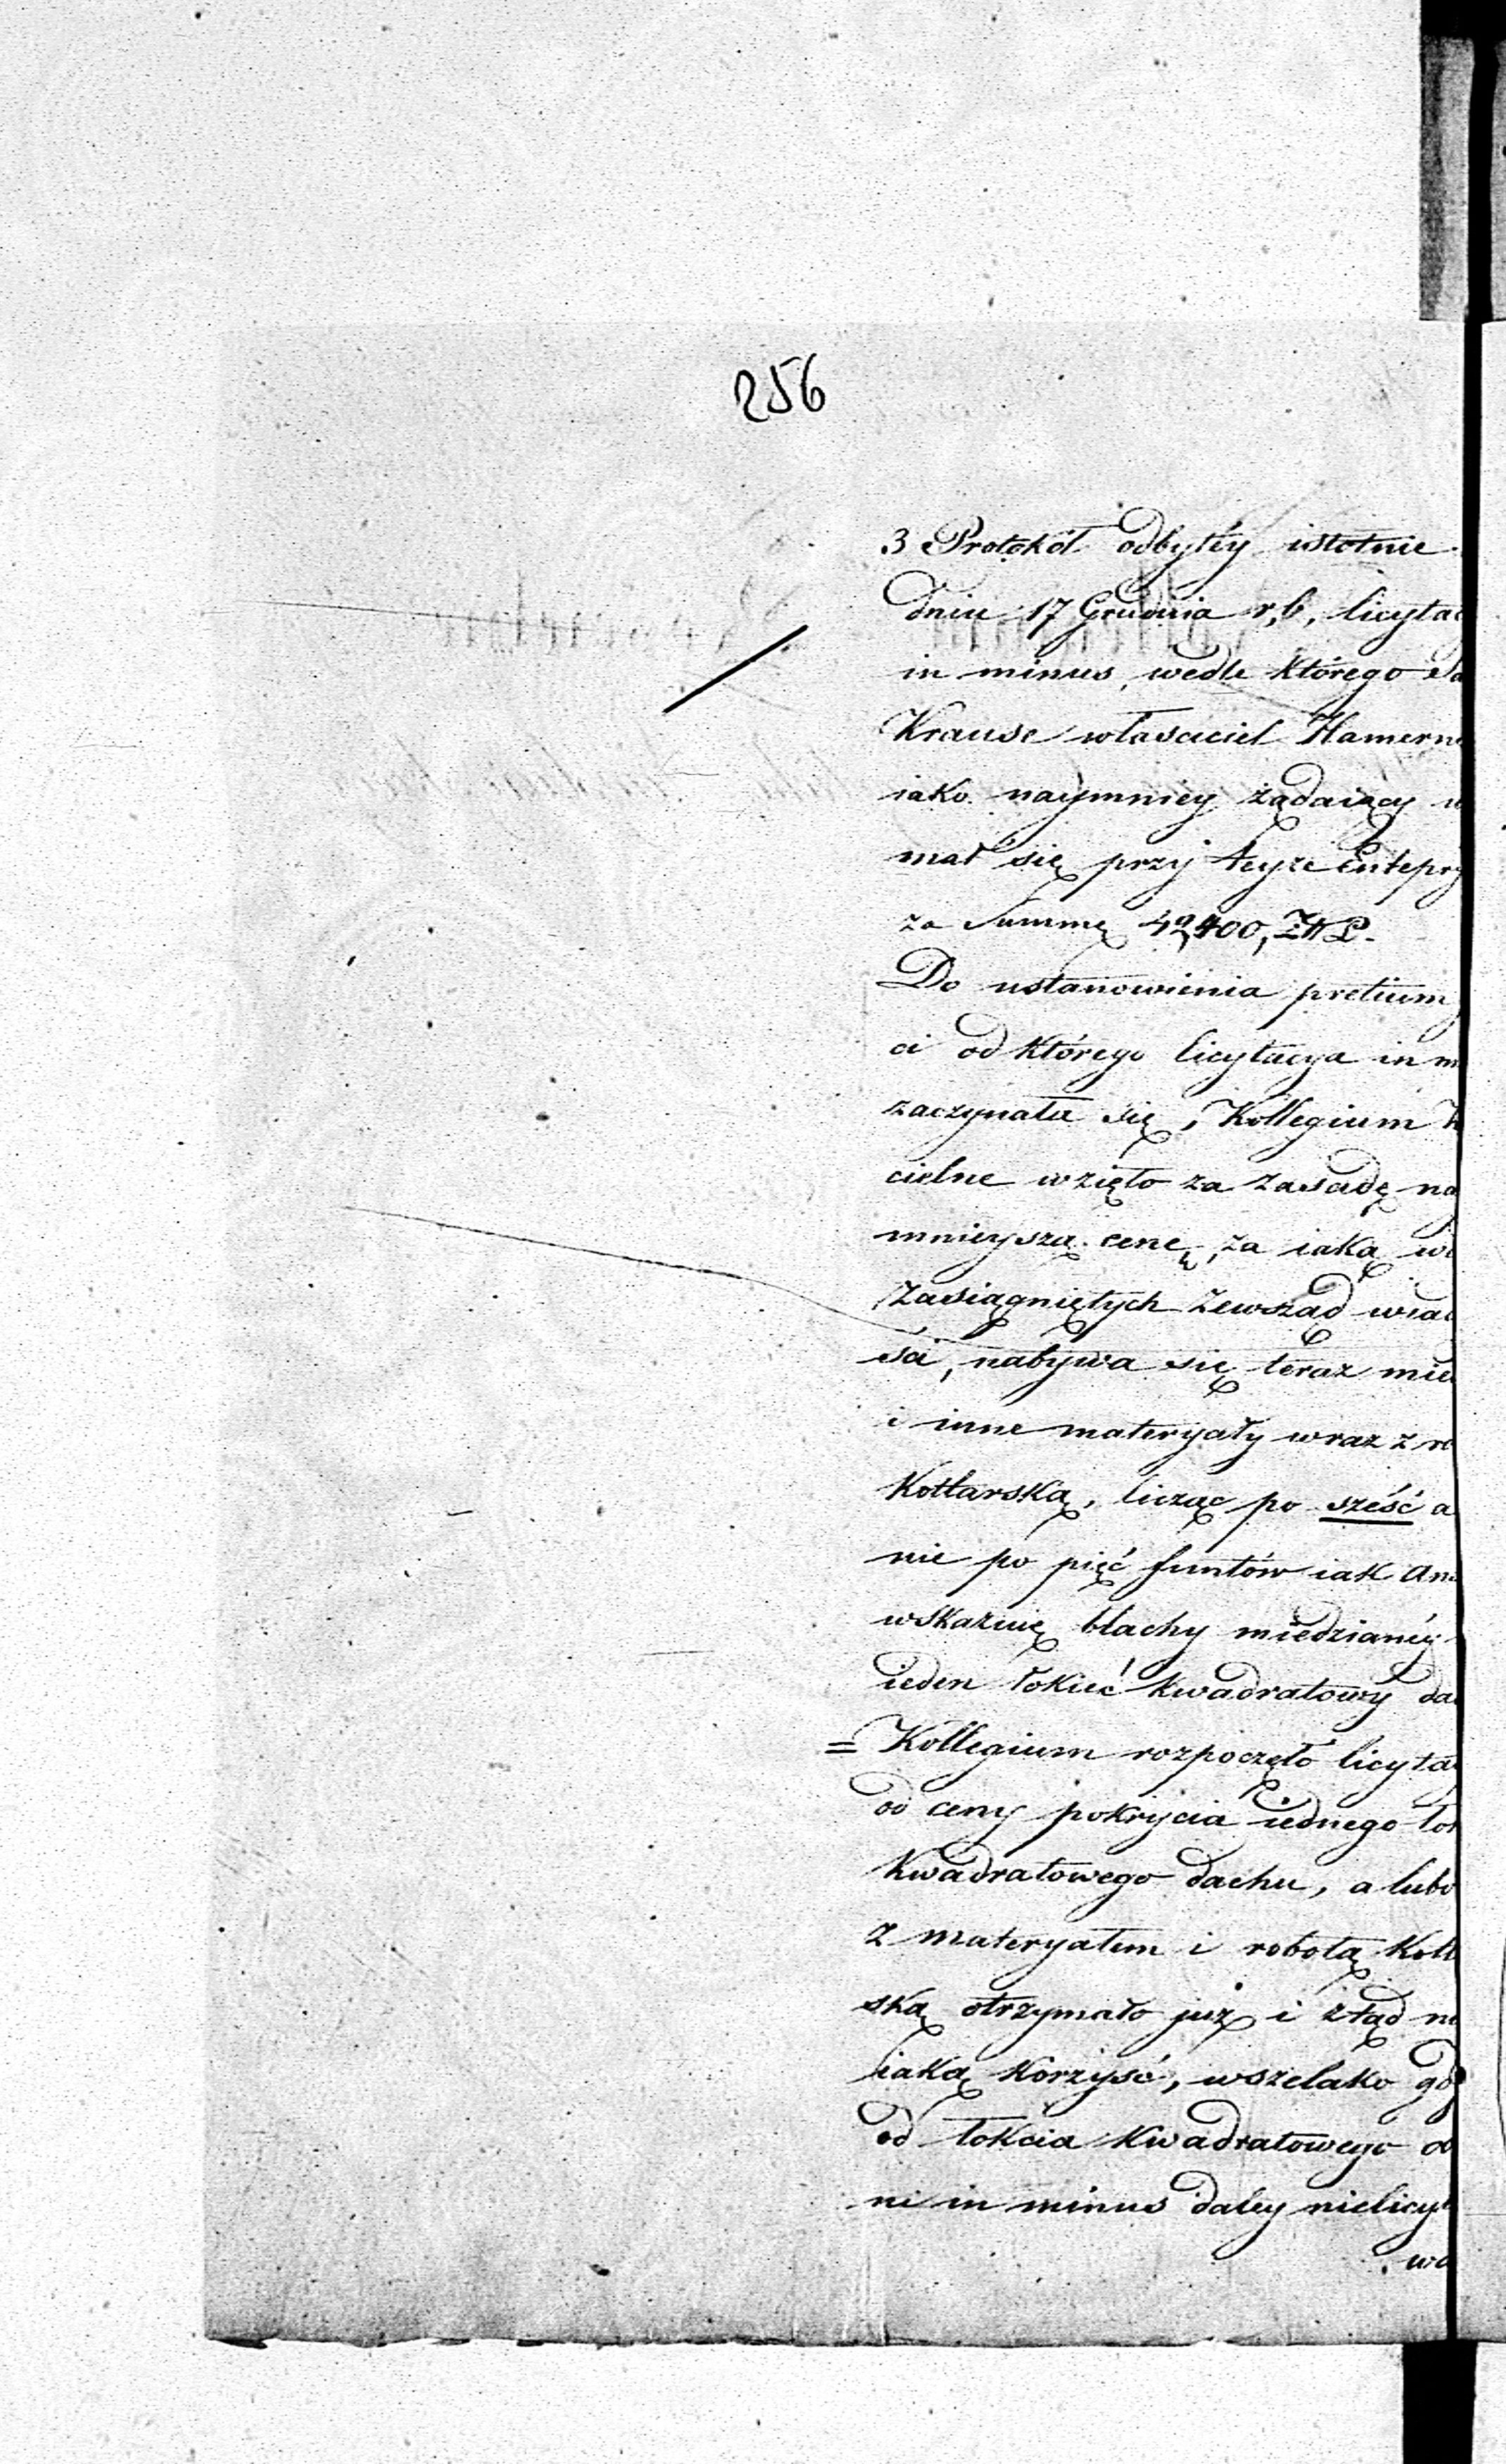 256
3 Protokół odbytéy istotnie
dniu 17 Grudnia r, b, licytac
in minus, wedle którego Sa
Krause właściciel Hamern
iako naymniey żądaiący u
mał się przy teyże Entepry
za Summę 42,400, ZłP.
Do ustanowienia pretium
ci od którego licytacya in m
zaczynała się, Kollegium K
cielne wzięło za zasadę na
mnieyszą cenę, za iaką we
zasiągniętych zewsząd wiad
ści, nabywa się teraz mie
i inne materyały wraz z ro
kotlarską, licząc po sześć a
nie po pięć funtów iak An
wskazuię blachy miedzianéy
ieden łokieć kwadratowy da
= Kollegium rozpoczęło licyta
od ceny pokrycia iednego łok
kwadratowego dachu, a lubo
z materyałem i robotą kotl
ską otrzymało już i ztąd ni
iaką korzyść, wszelako gdy
od łokcia kwadratowego ob
ni in minus daley nielicyt
wa